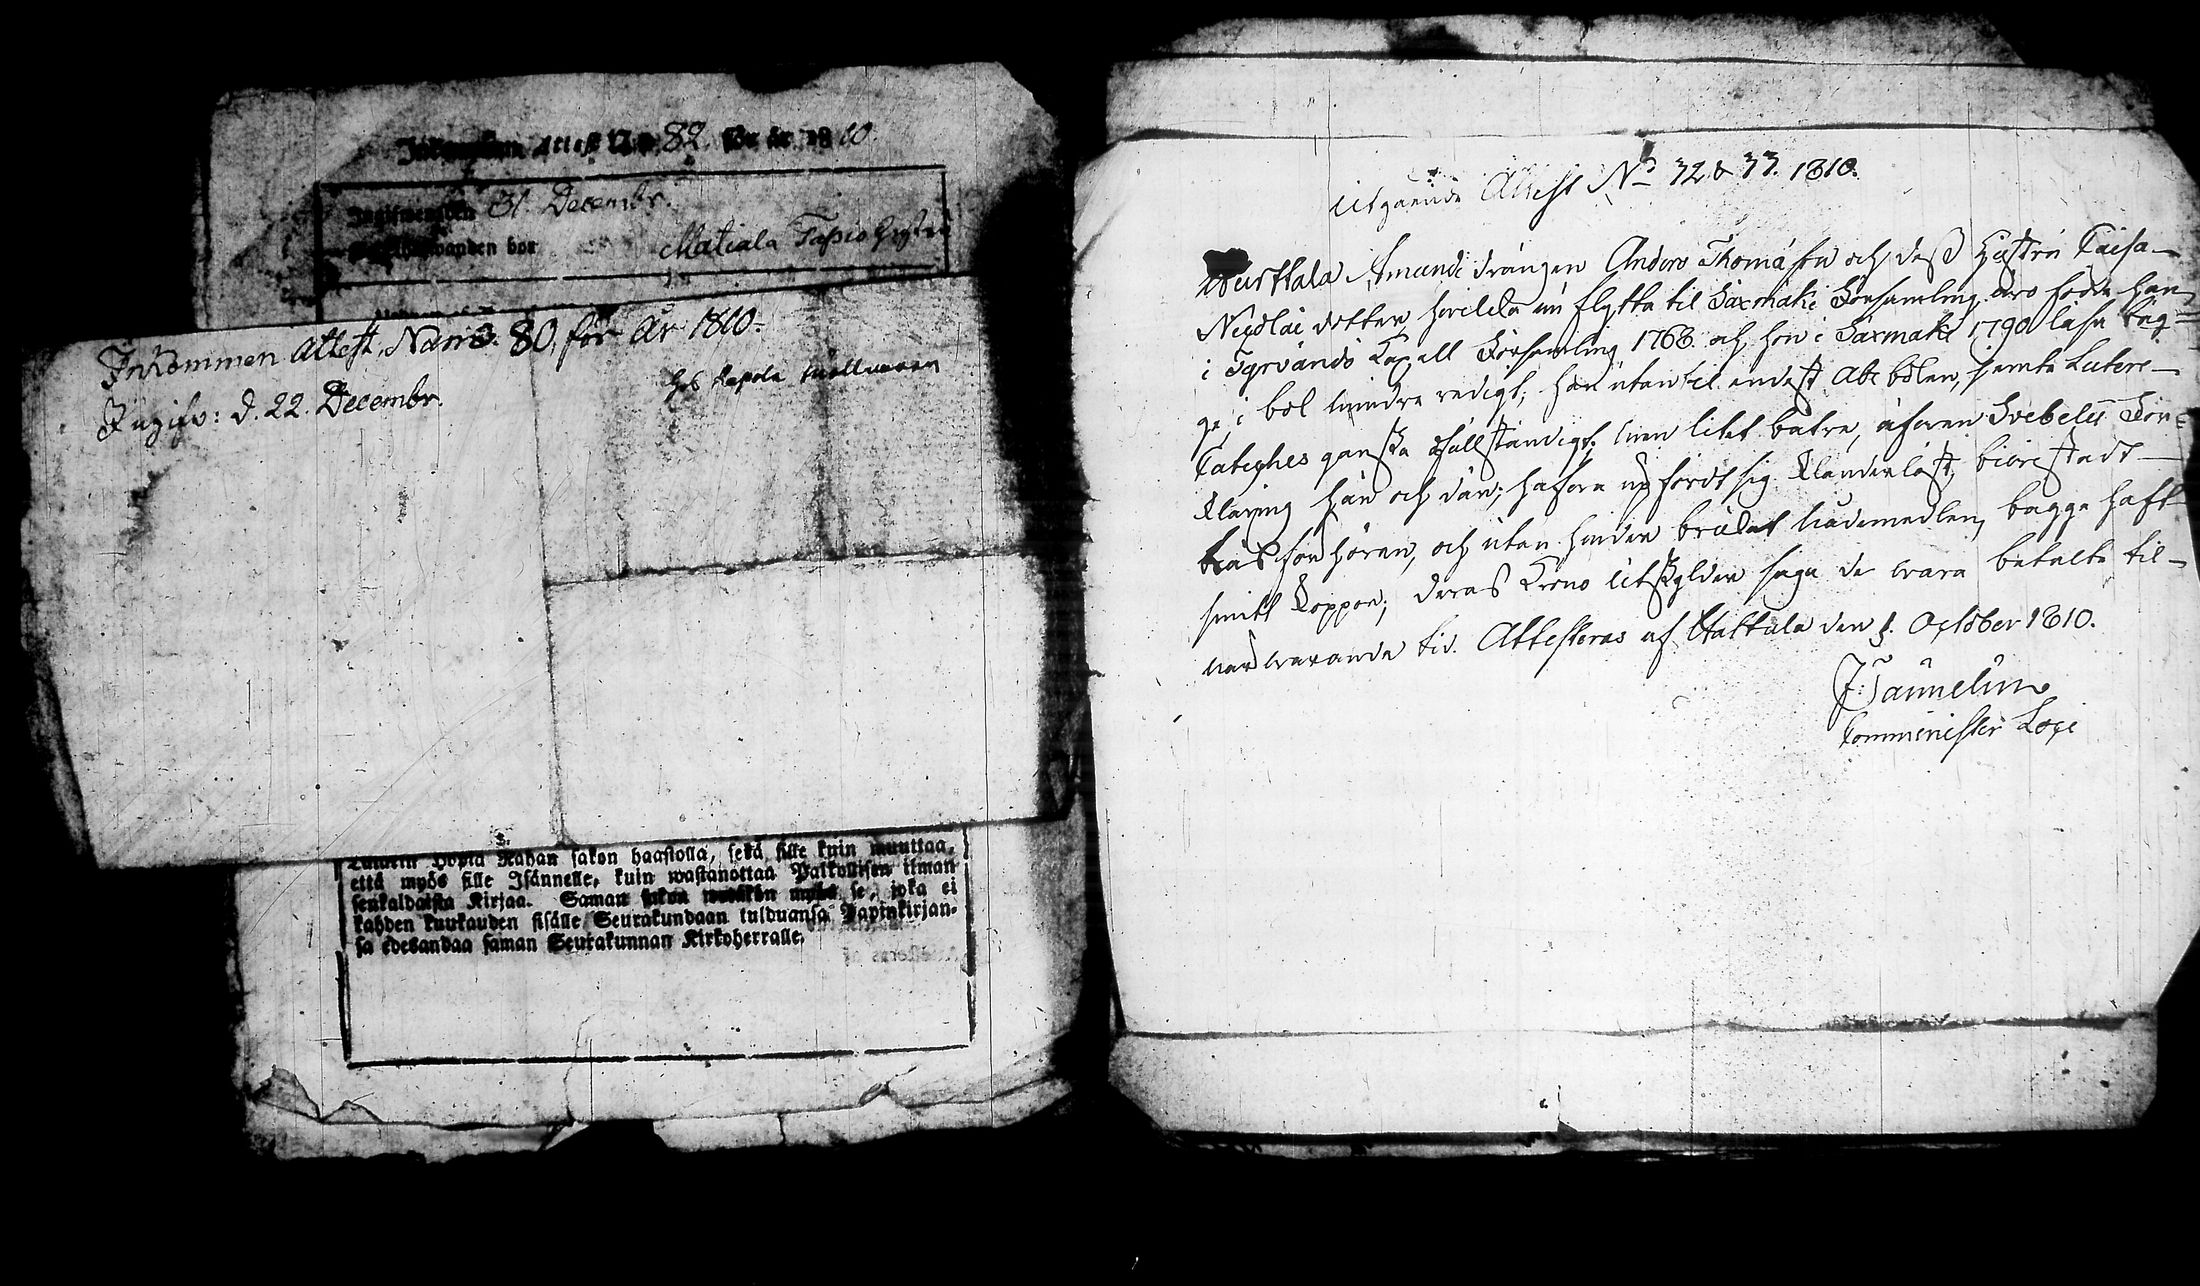 Inkommen Attest No 82. För år 1810.
Ingifwen den 31. Decembr.
bor Matiala Tapio Hustru
Inkommen Attest, Nummro. 80, för År 1810.
Ingifv: d. 22. Decembr.
hos Rapola
Rahan sakon haastolla, sekä sille kuin muuttaa,
että myös sille Isännelle, kuin wastanottaa Palkollisen ilman
senkaldaista Kirjaa. Saman sakon se, joka ei
kahden kuukauden sisälle Seurakundaan tulduansa Papinkirjan-
sa edesandaa saman Seurakunnan Kirkoherralle.
Utgående Attest No 32 & 33. 1810.
Amundi drängen Anders Thomasson och dess Hustru Caisa
Nicolai dotter, hvilka nu flytta til Saxmäki Församling, äro födde han
i Tyrvändö Capell Församling 1768. och hon i Saxmäki 1790. läsa beg=
ge i bok mindre redigt, han utantil endast Abc boken, jemte Luteri
Cateches ganska ofullständigt; hon litet bätre, äfven Svebelii För=
klaring här och där; hafva upfördt sig klanderlöst, bivistadt
Läsförhören, och utan hinder brukat Nådemedlen, bägge haft
smitt koppor; deras Crono Utskylder säga de wara betalte til
närwarande tid. Attesteras af Uskila den 1. October 1810.
Comminister Loci